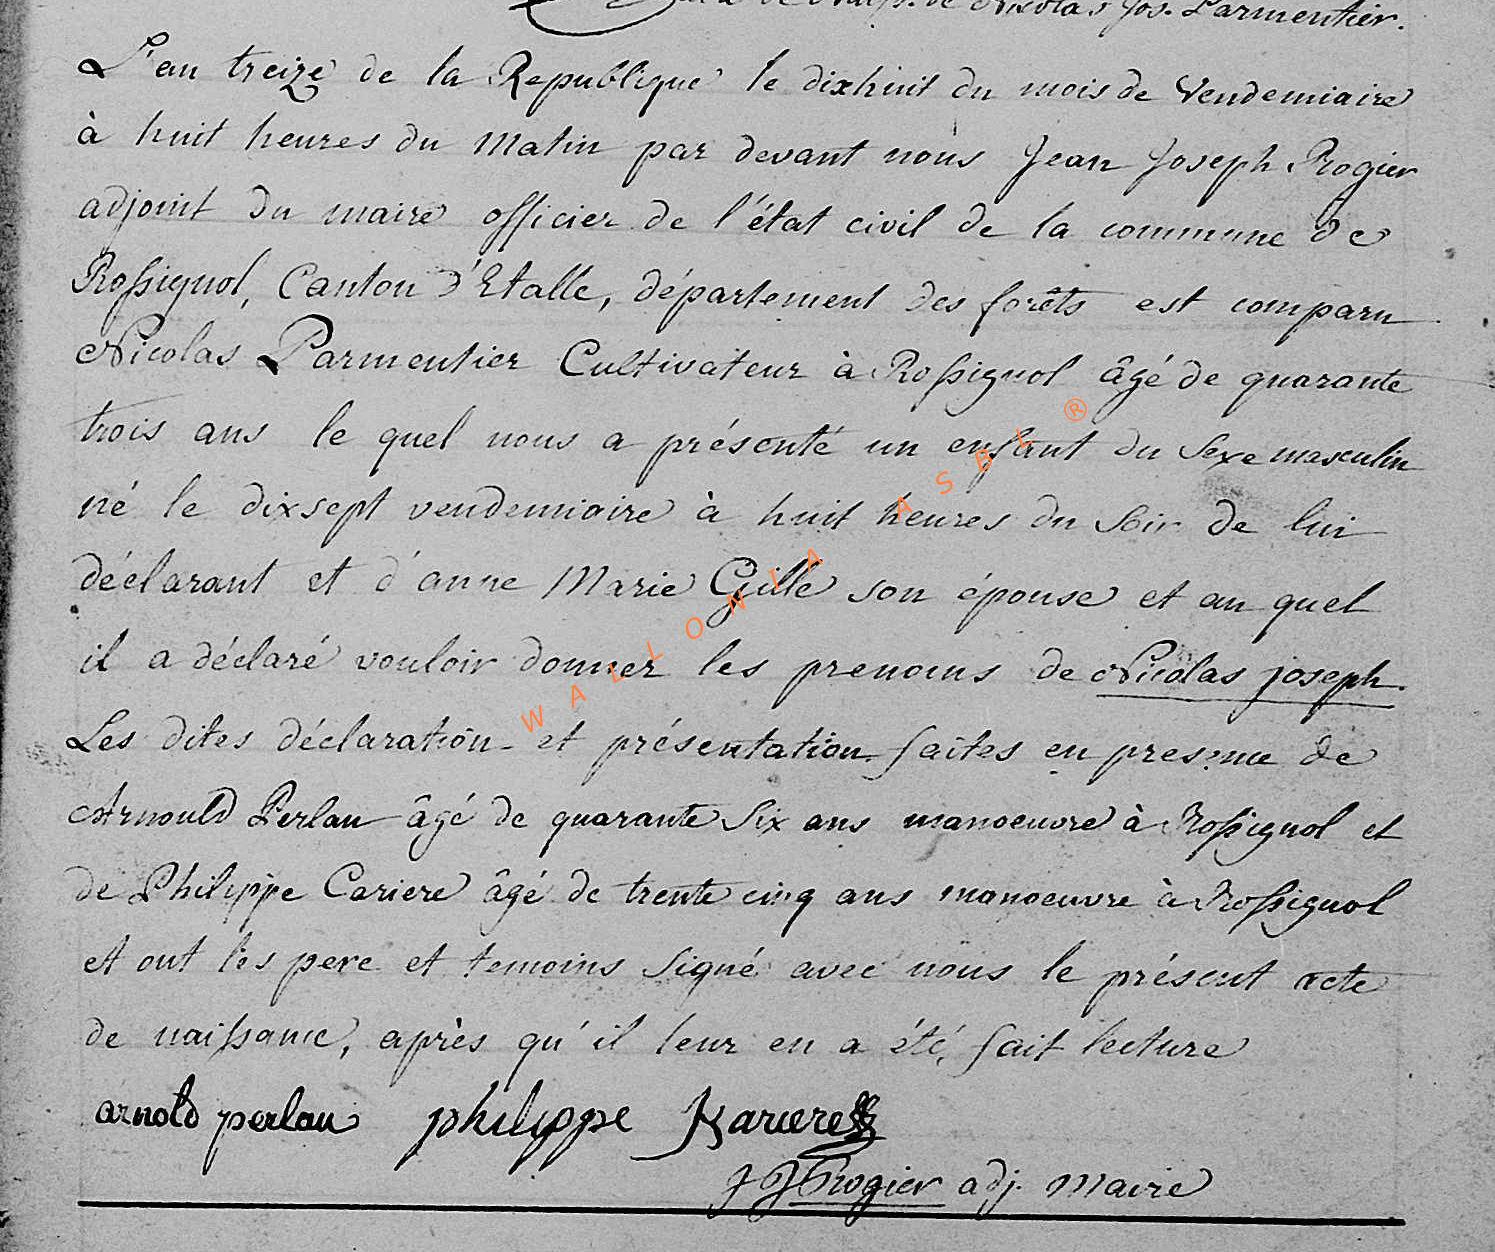 de Nicolas Jos. Parmentier.
L'an treize de la Republique le dixhuit du mois de Vendemiaire
à huit heures du Matin par devant nous Jean Joseph Rogier
adjoint du maire officier de l'état civil de la commune de
Rossignol, Canton d'Etalle, département des forêts est comparu
Nicolas Parmentier Cultivateur à Rossignol âgé de quarante
trois ans le quel nous a présenté un enfant du Sexe masculin
né le dixsept vendemiaire à huit heures du Soir de lui
déclarant et d'anne Marie Gille son épouse et au quel
il a déclaré vouloir donner les prenoms de Nicolas joseph.
Les dites déclaration et présentation faites en presence de
Arnould Perlau âgé de quarante Six ans manoeuvre à Rossignol et
de Philippe Cariere âgé de trente cinq ans manoeuvre à Rossignol
et ont les pere et temoins Signé avec nous le présent acte
de naissance, après qu'il leur en a été, fait lecture
arnold perlau philippe Karier
JJ Rogier adj. Maire
WALLONIA ASBL ®